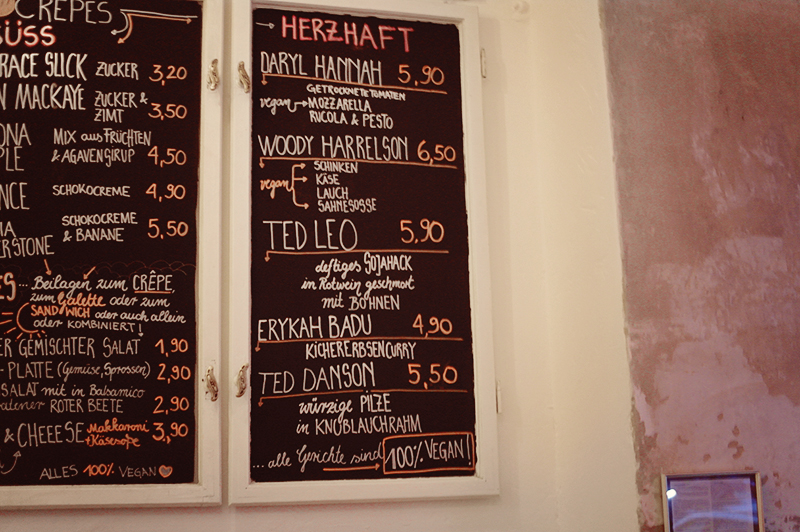 CRÊPES
SÜSS
RACE SLICK ZUCKER 3,20
N MACKAYE ZUCKER & ZIMT 3,50
ONA
PLE
MIX aus FRÜCHTEN
& AGAVENSIRUP 4,50
NCE SCHOKOCREME 4,90
HA
ERSTONE
SCHOKOCREME
& BANANE 5,50
ES ... Beilagen zum CRÊPE,
zum Galette oder zum
SANDWICH oder auch allein
oder KOMBINIERT!
ER GEMISCHTER SALAT 1,90
- PLATTE (Gemüse, Sprossen) 2,90
SALAT mit in Balsamico
ROTER BEETE 2,90
& CHEEESE Makkaroni
+ Käsesoße 3,90
ALLES 100% VEGAN
→ HERZHAFT
DARYL HANNAH 5,90
GETROCKNETE TOMATEN
vegan → MOZZARELLA
RUCOLA & PESTO
WOODY HARRELSON 6,50
SCHINKEN
vegan KÄSE
LAUCH
SAHNESOSSE
TED LEO 5,90
deftiges SOJAHACK
in Rotwein geschmort
mit BOHNEN
ERYKAH BADU 4,90
KICHERERBSENCURRY
TED DANSON 5,50
würzige PILZE
in KNOBLAUCHRAHM
... alle Gerichte sind 100% VEGAN!